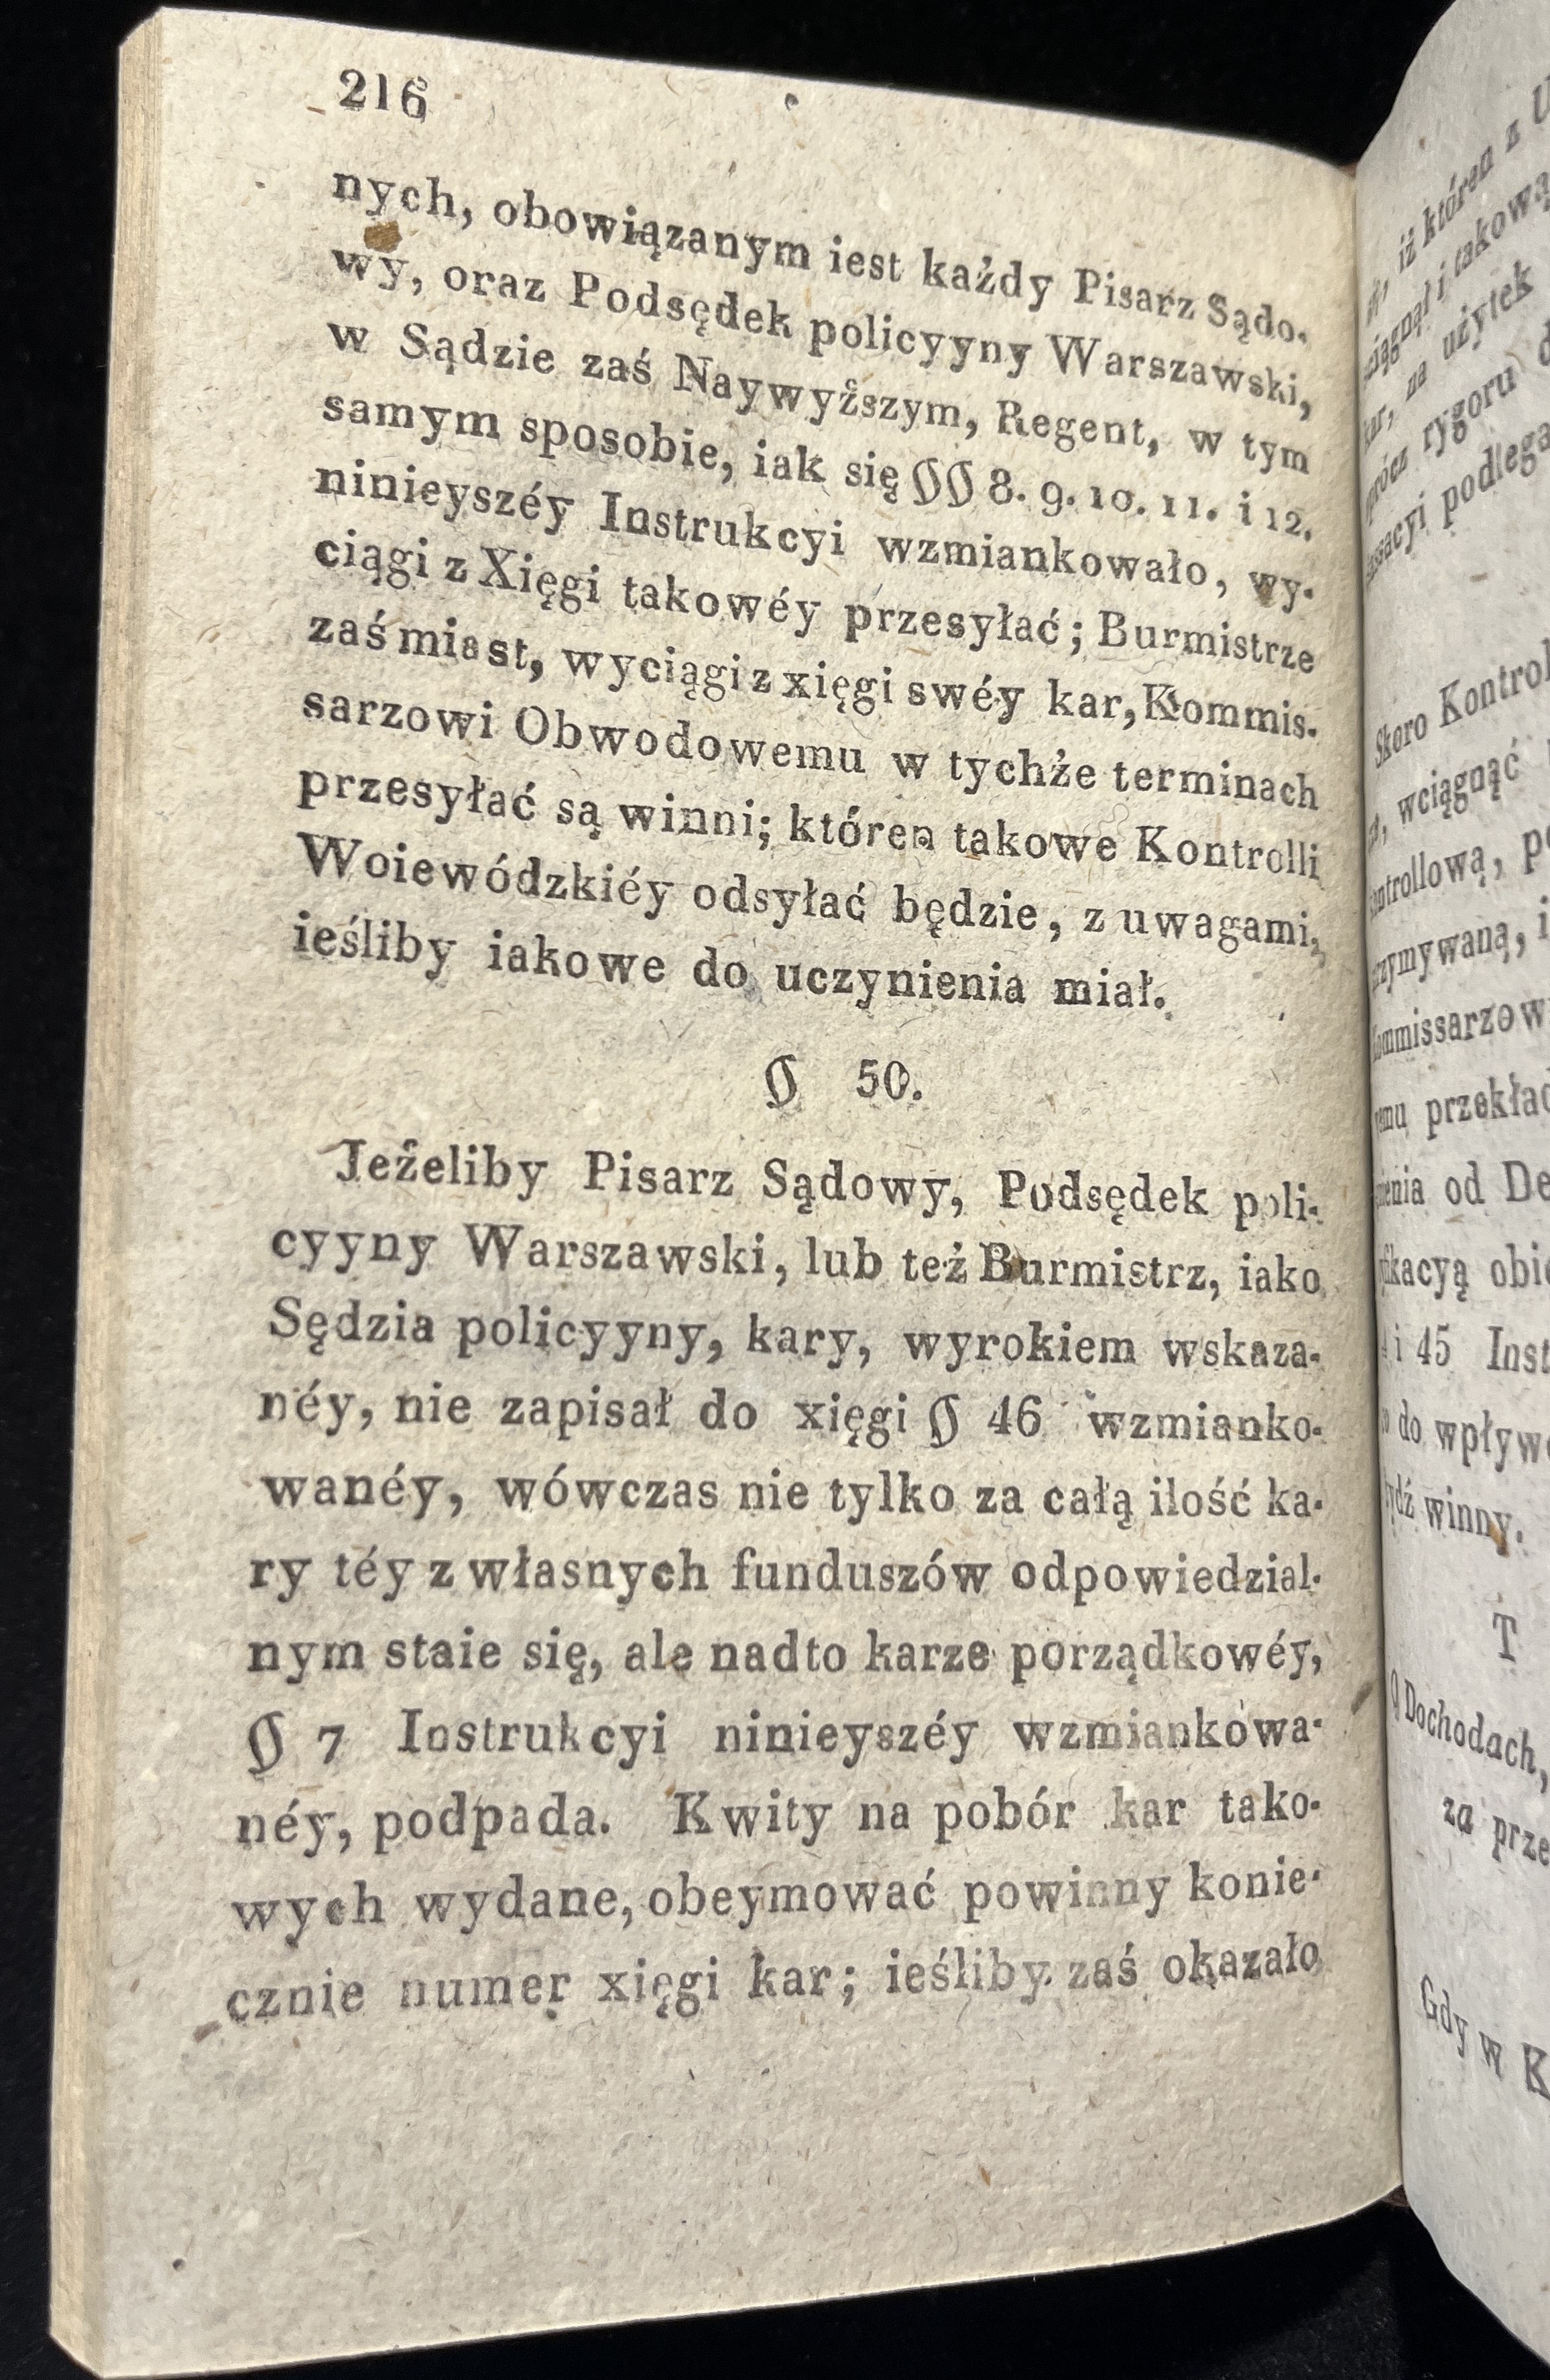 216
nych, obowiązanym iest każdy Pisarz Sądo-
wy, oraz Podsędek policyyny Warszawski,
w Sądzie zaś Naywyższym, Regent, w tym
samym sposobie, iak się §§ 8. 9. 10. 11. i 12.
ninieyszéy Instrukcyi wzmiankowało, wy-
ciągi z Xięgi takowéy przesyłać; Burmistrze
zaś miast, wyciągi z xięgi swéy kar, Kommis-
sarzowi Obwodowemu w tychże terminach
przesyłać są winni; któren takowe Kontrolli
Woiewódzkiéy odsyłać będzie, z uwagami,
ieśliby iakowe do uczynienia miał.
§ 50.
Jeżeliby Pisarz Sądowy, Podsędek poli-
cyyny Warszawski, lub też Burmistrz, iako
Sędzia policyyny, kary, wyrokiem wskaza-
néy, nie zapisał do xięgi § 46 wzmianko-
wanéy, wówczas nie tylko za całą ilość ka-
ry téy z własnych funduszów odpowiedzial-
nym staie się, ale nadto karze porządkowéy,
§ 7 Instrukcyi ninieyszéy wzmiankowa-
néy, podpada. Kwity na pobór kar tako-
wych wydane, obeymować powinny konie-
cznie numer xięgi kar; ieśliby zaś okazało
iż któren z
i takową
na użytek
rygoru
podlega
Skoro Kontrol
wciągnąć
przekład
od De
i 45 Inst
do wpływ
winny.
T
Dochodach,
za prze
Gdy w K